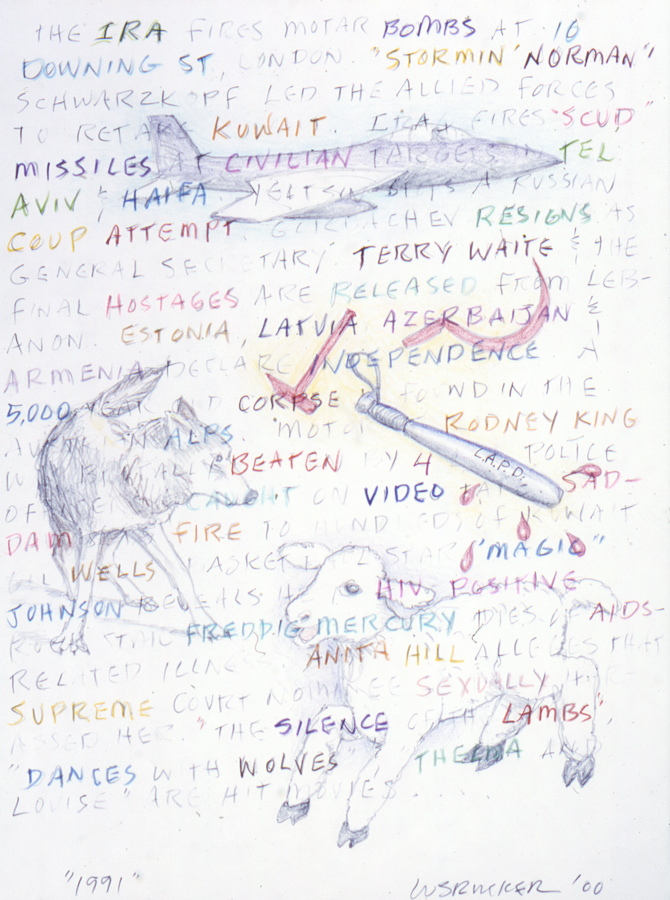 THE IRA FIRES MOTAR BOMBS AT 10
DOWNING ST, LONDON. "STORMIN' NORMAN"
SCHWARZKOPF LED THE ALLIED FORCES
TO RETAKE KUWAIT. IRAQ FIRES "SCUD"
MISSILES AT CIVILIAN TARGETS IN TEL
AVIV & HAIFA. YELTSIN A RUSSIAN
COUP ATTEMPT. GORBACHEV RESIGNS AS
GENERAL SECRETARY. TERRY WAITE & THE
FINAL HOSTAGES ARE RELEASED FROM LEB-
ANON. ESTONIA, LATVIA AZERBAIJAN &
ARMENIA DECLARE INDEPENDENCE. A
5,000 YEAR OLD CORPSE IS FOUND IN THE
AUSTRIAN ALPS. RODNEY KING
BRUTALLY BEATEN BY 4 POLICE
CAUGHT ON VIDEO SAD-
DAM FIRE TO HUNDREDS OF KUWAIT
OIL WELLS. BASKETBALL STAR "MAGIC"
JOHNSON REVEALS HIV POSITIVE
ROCK STAR FREDDIE MERCURY DIES OF AIDS-
RELATED ILLNESS ANITA HILL ALLEGES THAT
SUPREME COURT NOMINEE SEXUALLY HAR-
ASSED HER. "THE SILENCE OF THE LAMBS",
"DANCES WITH WOLVES" "THELMA AND
LOUISE" ARE HIT MOVIES
L.A.P.D.
"1991"
WSRUCKER '00